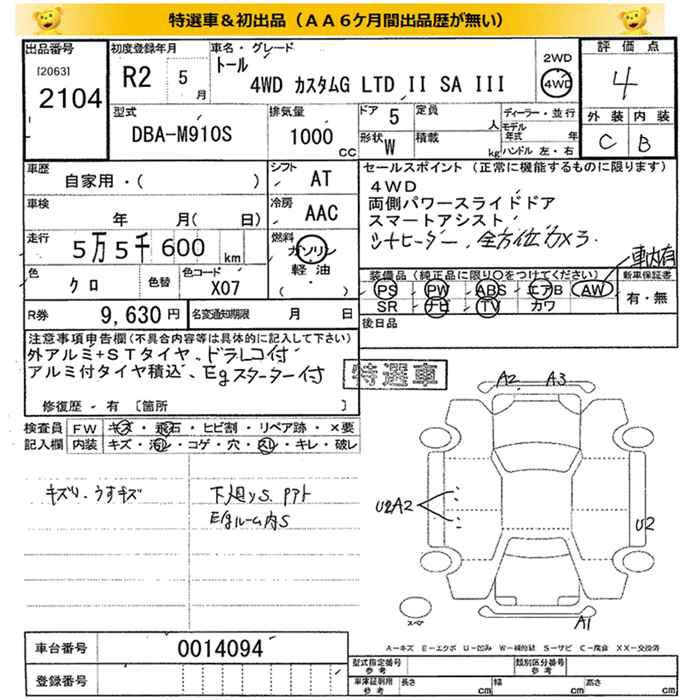 特選車&初出品(AA6ケ月間出品歴が無い)
出品番号 初度登録年月 車名・グレード 2WD 評価点
[2063] トール
2104 R2 5月 4WD カスタムG LTD II SA III 4WD 4
型式 排気量 ドア 5 定員 人 ディーラー・並行 外装 内装
モデル年式 年
DBA-M910S 1000 CC 形状 W 積載 kg ハンドル 左・右 C B
車歴 シフト セールスポイント(正常に機能するものに限ります)
自家用・( ) AT 4WD
両側パワースライドドア
車検 冷房 スマートアシスト
年 月(日) AAC シートヒーター、全方位カメラ
走行 燃料 車内有
5万5千600km ガソリン 装備品(純正品に限り○をつけてください) 新車保証書
軽油 PS PW ABS エアB AW 有・無
色 色替 色コード ( ) SR ナビ TV カワ
クロ X07
後日品
R券 9,630円 名変通知期限 月 日
注意事項申告欄(不具合内容等は具体的に記入して下さい)
外アルミ+STタイヤ、ドラレコ付
アルミ付タイヤ積込、Egスターター付
特選車
修復歴・有 [箇所 ]
A2 A3
検査員 FW キズ・飛石・ヒビ割・リペア跡・×要
記入欄 内装 キズ・汚レ・コゲ・穴・スレ・キレ・破レ
キズリ、うすキズ 下廻りS.
EgルームS
U2A2 U2
スペア A1
A-キズ E-エクボ U-凹み W-補修跡 S-サビ C-腐食 XX-交換済
車台番号 0014094
型式指定番号 参考 類別区分番号 参考
登録番号
車庫証明用 参考 長さ cm 幅 cm 高さ cm